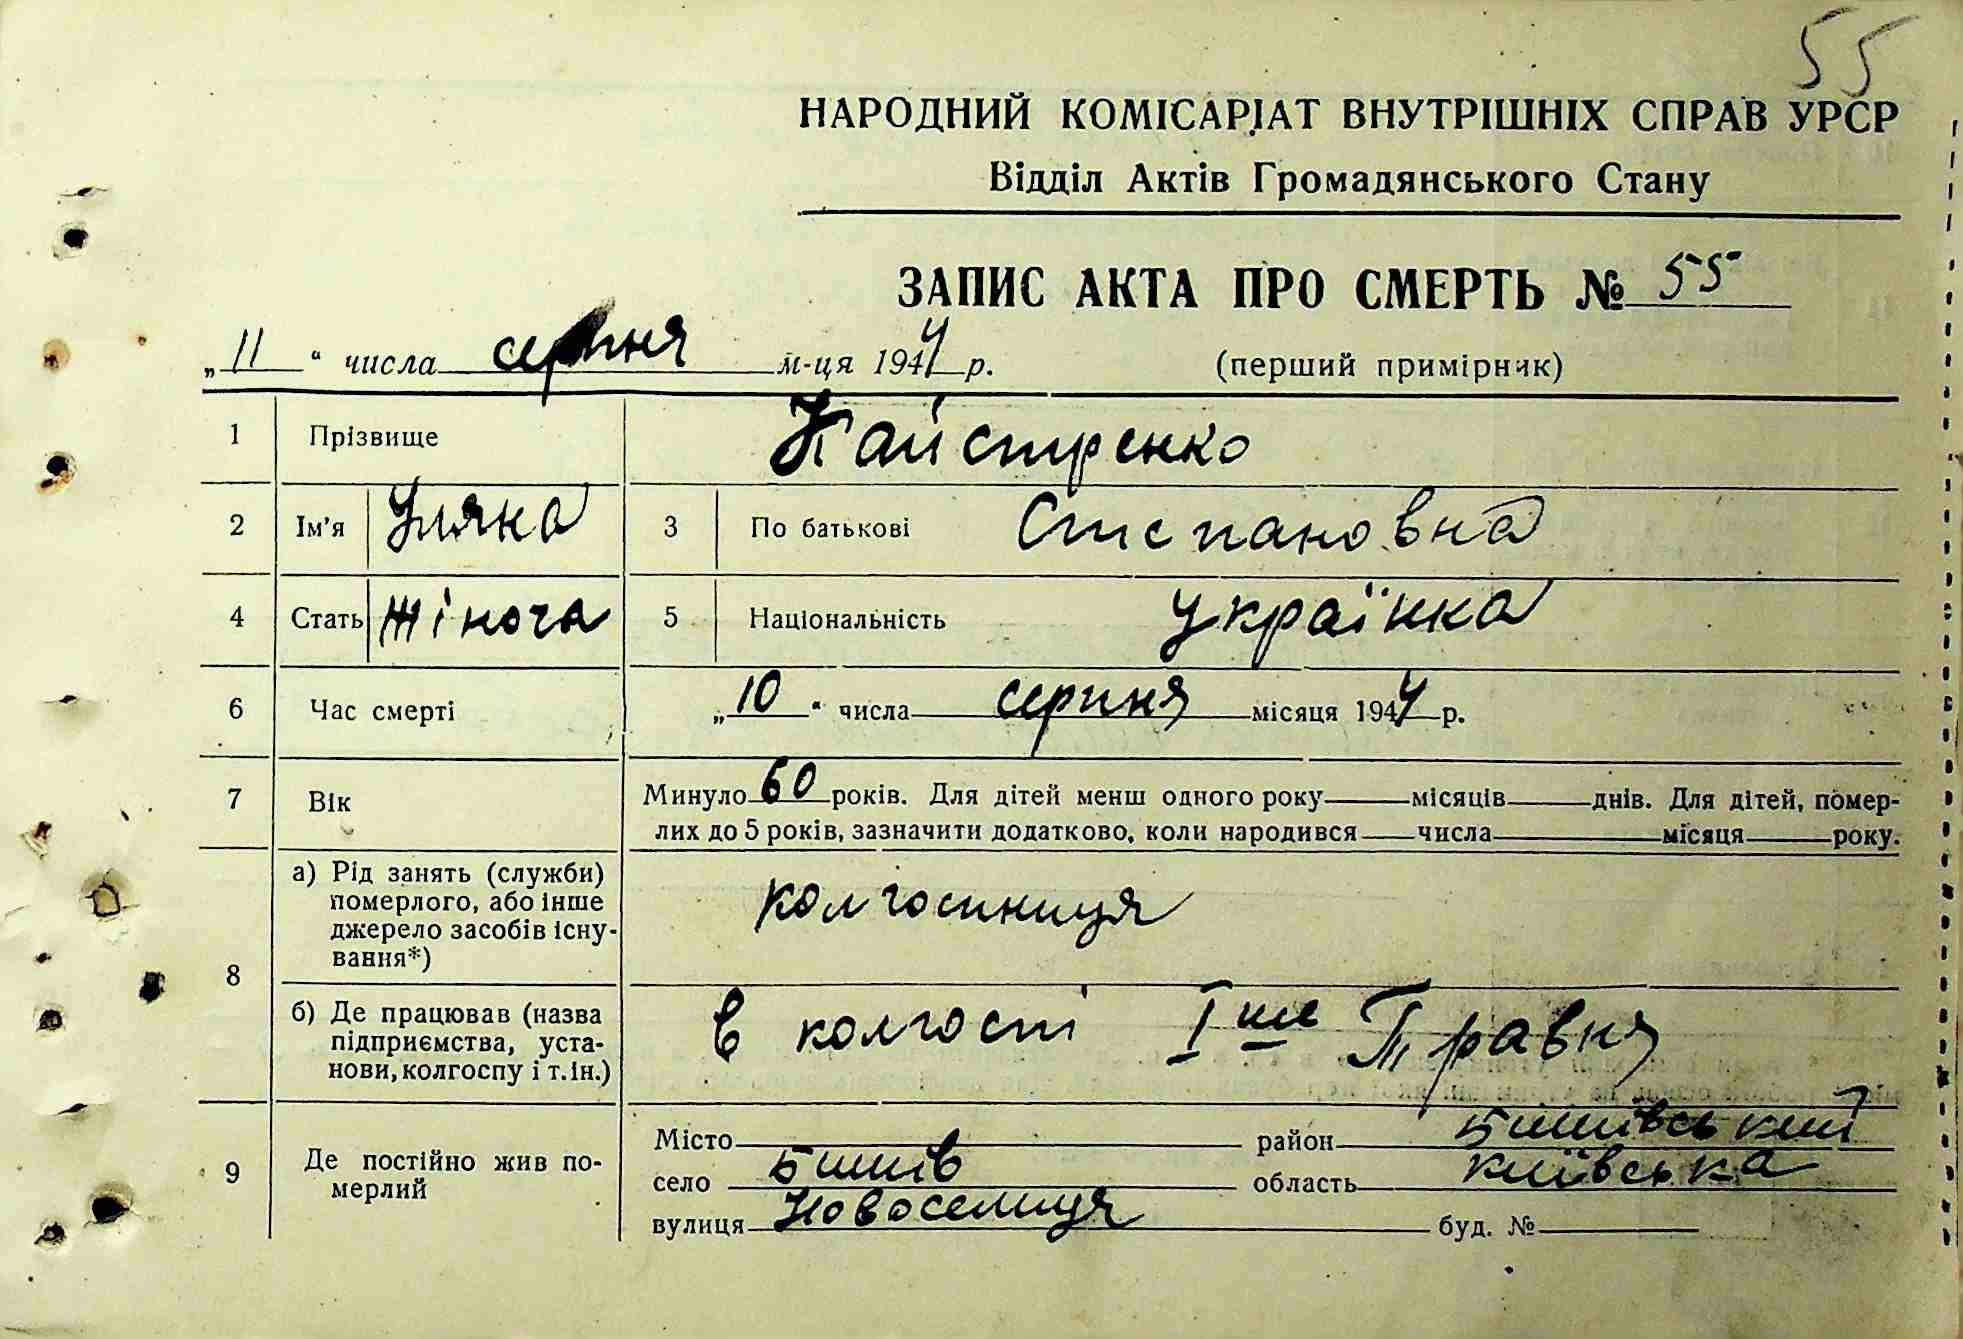 55
НАРОДНИЙ КОМІСАРІАТ ВНУТРІШНІХ СПРАВ УРСР
Відділ Актів Громадянського Стану
ЗАПИС АКТА ПРО СМЕРТЬ № 55
„11“ числа серпня м-ця 1944 р. (перший примірник)
1 Прізвище Кайстренко
2 Ім'я Уляна 3 По батькові Степановна
4 Стать Жіноча 5 Національність Українка
6 Час смерті „10“ числа серпня місяця 1944 р.
7 Вік Минуло 60 років. Для дітей менш одного року місяців днів. Для дітей, помер-
лих до 5 років, зазначити додатково, коли народився числа місяця року.
8 а) Рід занять (служби)
померлого, або інше
джерело засобів існу-
вання*)
колгоспниця
б) Де працював (назва
підприємства, уста-
нови, колгоспу і т.ін.)
в колгоспі І ше Травня
9 Де постійно жив по-
мерлий
Місто район Бишівський
село Бишів область Київська
вулиця Новоселиця буд. №